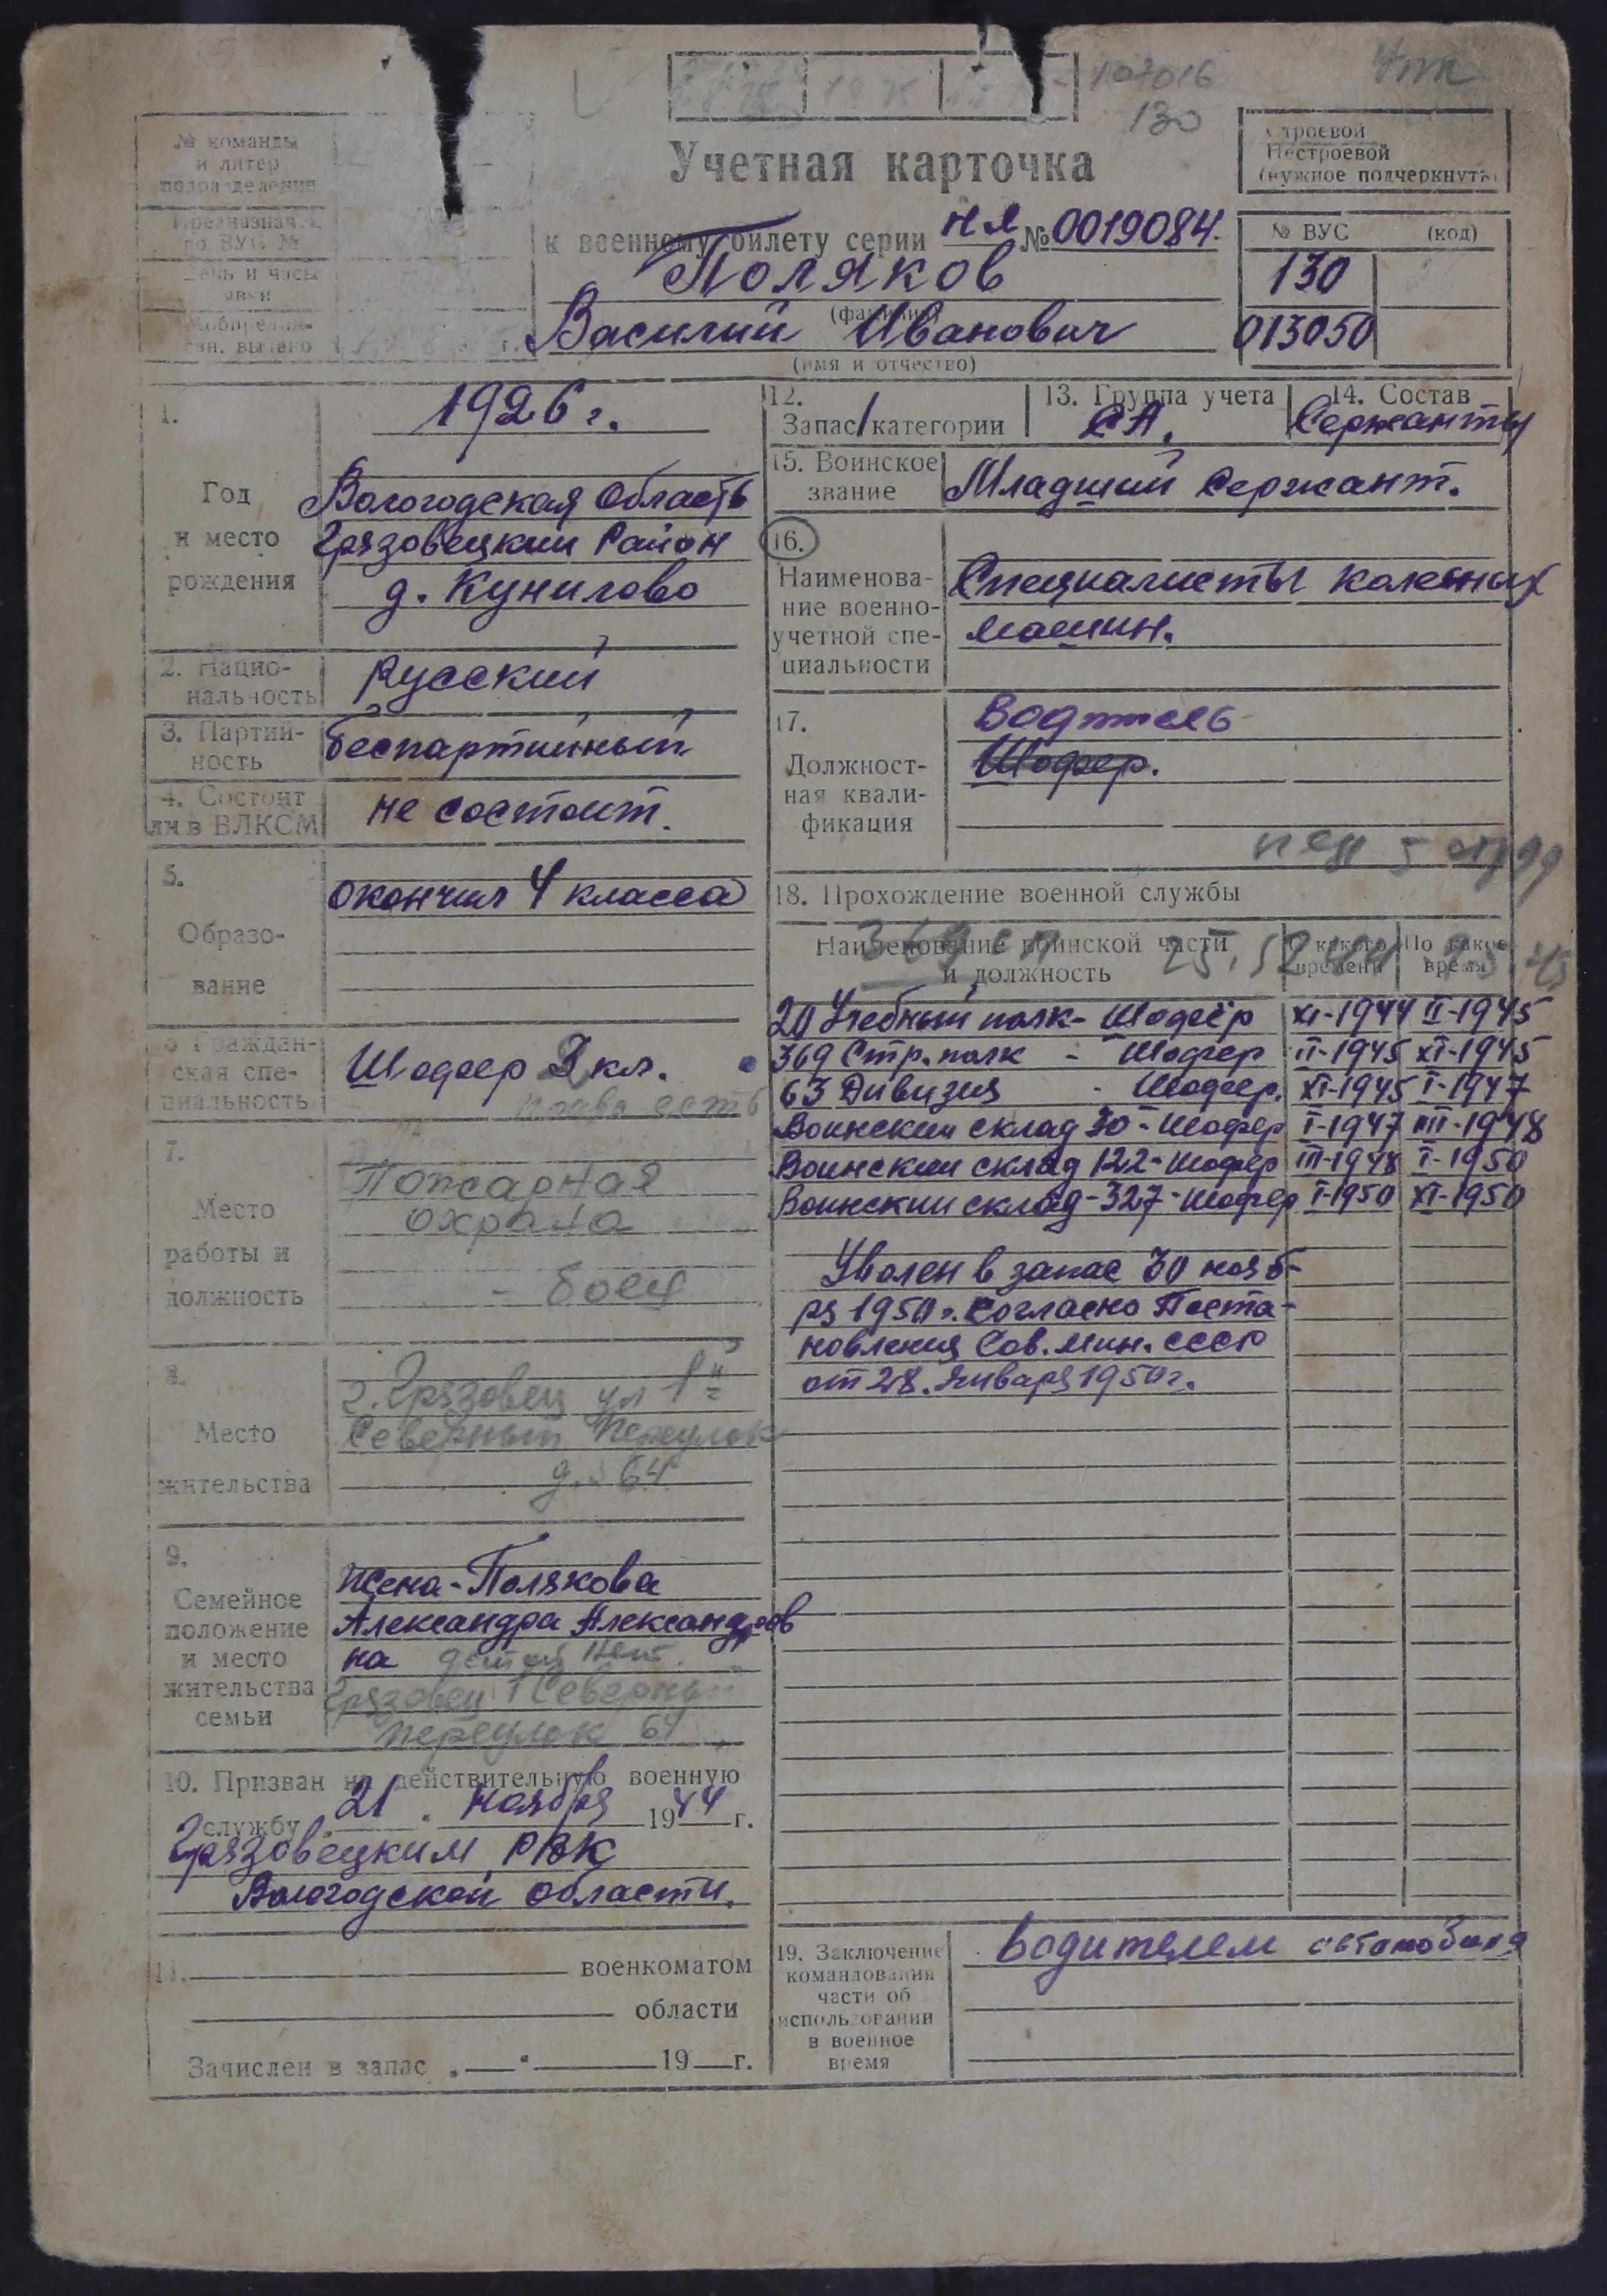 107016
130
Учетная карточка
к военному билету серии НЯ № 0019084.
Поляков
(фамилия)
Василий Иванович
(имя и отчество)
№ команды
и литер
подразделения
Предназначен
по ВУС №
День и часы
явки
Мобпредпи-
сан. выдано
г.
Строевой
Нестроевой
(нужное подчеркнуть)
№ ВУС (код)
130
013050
1.
Год
и место
рождения
1926 г.
Вологодская область
Грязовецкий Район
д. Кунилово
2. Нацио-
нальность
русский
3. Партий-
ность
беспартийный
4. Состоит
ли в ВЛКСМ
не состоит.
5.
Образо-
вание
окончил 4 класса
6 Граждан-
ская спе-
циальность
Шофер 3 кл.
права есть
7.
Место
работы и
должность
Пожарная
охрана
- боец
8.
Место
жительства
г. Грязовец ул 1й
Северный переулок
д. 64
9.
Семейное
положение
и место
жительства
семьи
жена - Полякова
Александра Александров
на детей нет.
Грязовец 1 Северный
переулок 64
10. Призван на действительную военную
службу 21 ноября 1944 г.
Грязовецким РВК
Вологодской области.
11. военкоматом
области
Зачислен в запас „ “ 19 г.
12.
Запас 1 категории
13. Группа учета
СА.
14. Состав
Сержанты
15. Воинское
звание
Младший сержант.
16.
Наименова-
ние военно-
учетной спе-
циальности
Специалисты колесных
машин.
17.
Должност-
ная квали-
фикация
Водитель
Шофер.
18. Прохождение военной службы
Наименование воинской части
и должность
С какого
времени
По какое
время
369 сп
20 Учебный полк - Шофёр XI-1944 II-1945
369 Стр. полк - Шофер II-1945 XI-1945
63 Дивизия - Шофер. XI-1945 I-1947
Воинский склад 30 - Шофер I-1947 III-1948
Воинский склад 122 - шофер III-1948 I-1950
Воинский склад - 327 - шофер I-1950 XI-1950
Уволен в запас 30 нояб-
ря 1950 г. согласно Поста-
новления Сов. Мин. СССР
от 28. Января 1950 г.
19. Заключение
командования
части об
использовании
в военное
время
водителем автомобиля